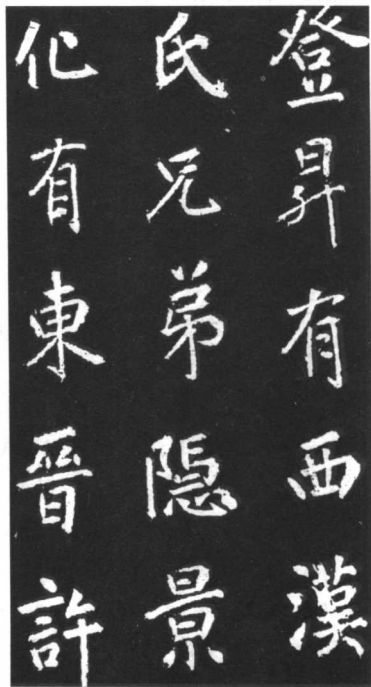 登昇有西漢
氏兄弟隱景
化有東晉許